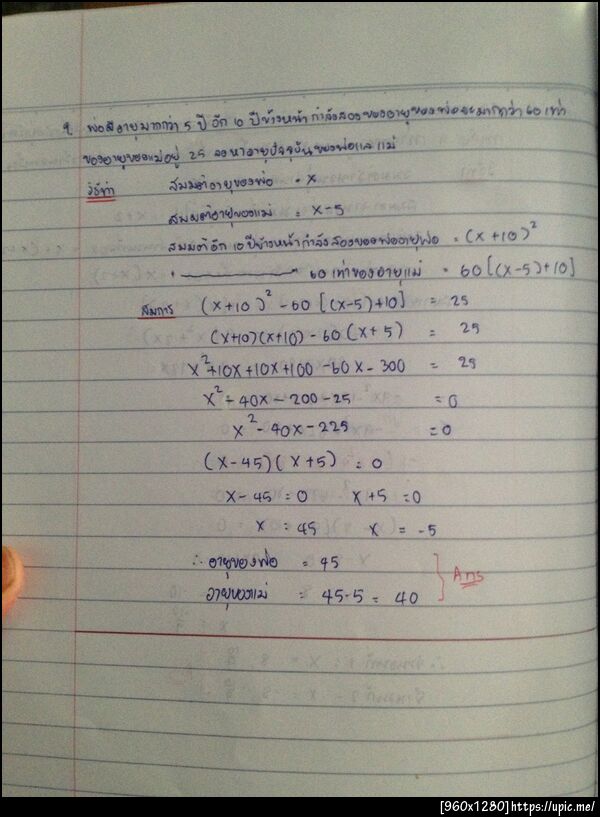 9. พ่อมีอายุมากกว่า 5 ปี อีก 10 ปีข้างหน้า กำลังสองของอายุของพ่อจะมากกว่า 60 เท่า
ของอายุของแม่อยู่ 25 จงหาอายุปัจจุบันของพ่อและแม่
วิธีทำ สมมติอายุของพ่อ = x
สมมติอายุของแม่ = x-5
สมมติอีก 10 ปีข้างหน้ากำลังสองของพ่ออายุพ่อ = (x+10)²
" ——— " 60 เท่าของอายุแม่ = 60[(x-5)+10]
สมการ (x+10)² - 60[(x-5)+10] = 25
(x+10)(x+10) - 60(x+5) = 25
x²+10x+10x+100 -60x-300 = 25
x² - 40x - 200 - 25 = 0
x² - 40x - 225 = 0
(x-45)(x+5) = 0
x - 45 = 0 x+5 = 0
x = 45 x = -5
∴ อายุของพ่อ = 45
อายุของแม่ = 45-5 = 40
Ans
[960x1280]https://upic.me/